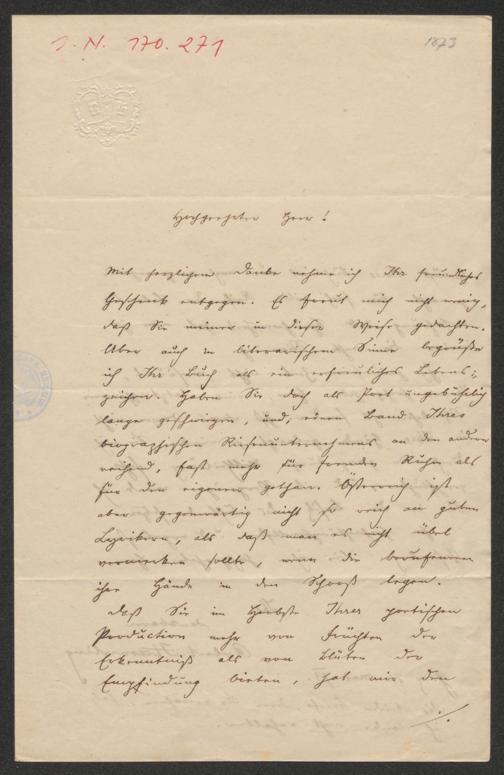 J. N. 170.271
1873
Hochgeehrter Herr!
Mit herzlichem Danke nehme ich Ihr freundliches
Geschenk entgegen. Es freut mich nicht wenig,
daß Sie meiner in dieser Weise gedachten.
Aber auch in literarischem Sinne begrüße
ich Ihr Buch als ein erfreuliches Lebens-
zeichen. Haben Sie doch als Poet ungebührlich
lange geschwiegen, und, einen Band Ihres
biographischen Riesenunternehmens an den andern
reihend, fast mehr für fremden Ruhm als
für den eigenen gethan. Österreich ist
aber gegenwärtig nicht so reich an guten
Lyrikern, als daß man es nicht übel
vermerken sollte, wenn die berufenen
ihre Hände in den Schooß legen.
Daß Sie im Herbste Ihrer poetischen
Production mehr von Früchten der
Erkenntniß als von Blüten der
Empfindung bieten, hat mir den